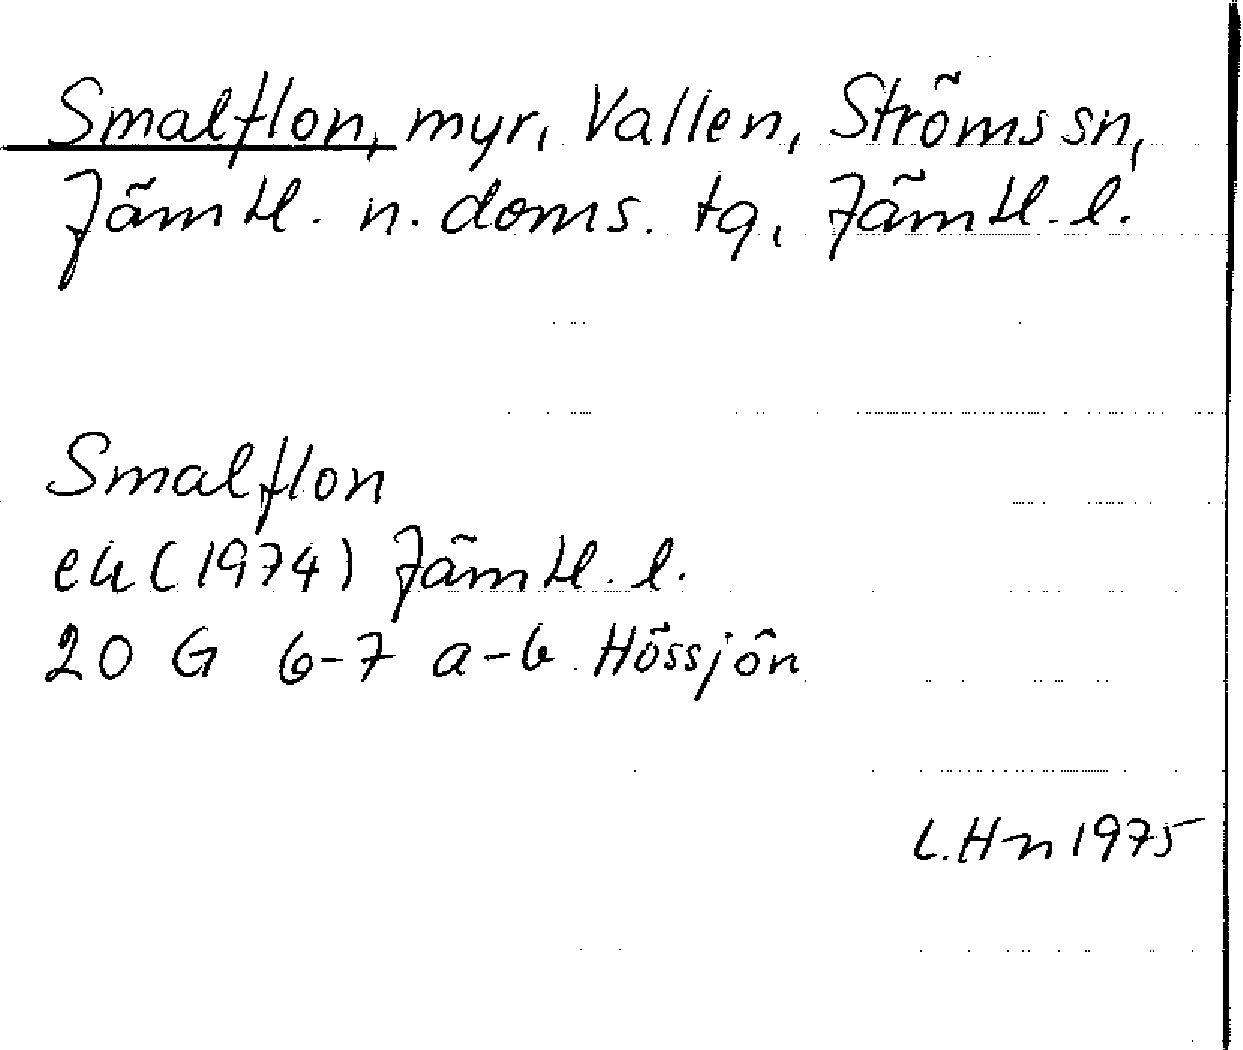 Smalflon, myr, Vallen, Ströms sn,
Jämtl. n. doms. tg, Jämtl. l.
Smalflon
ek (1974) Jämtl. l.
20 G 6-7 a-b Hössjön
L. Hn 1975